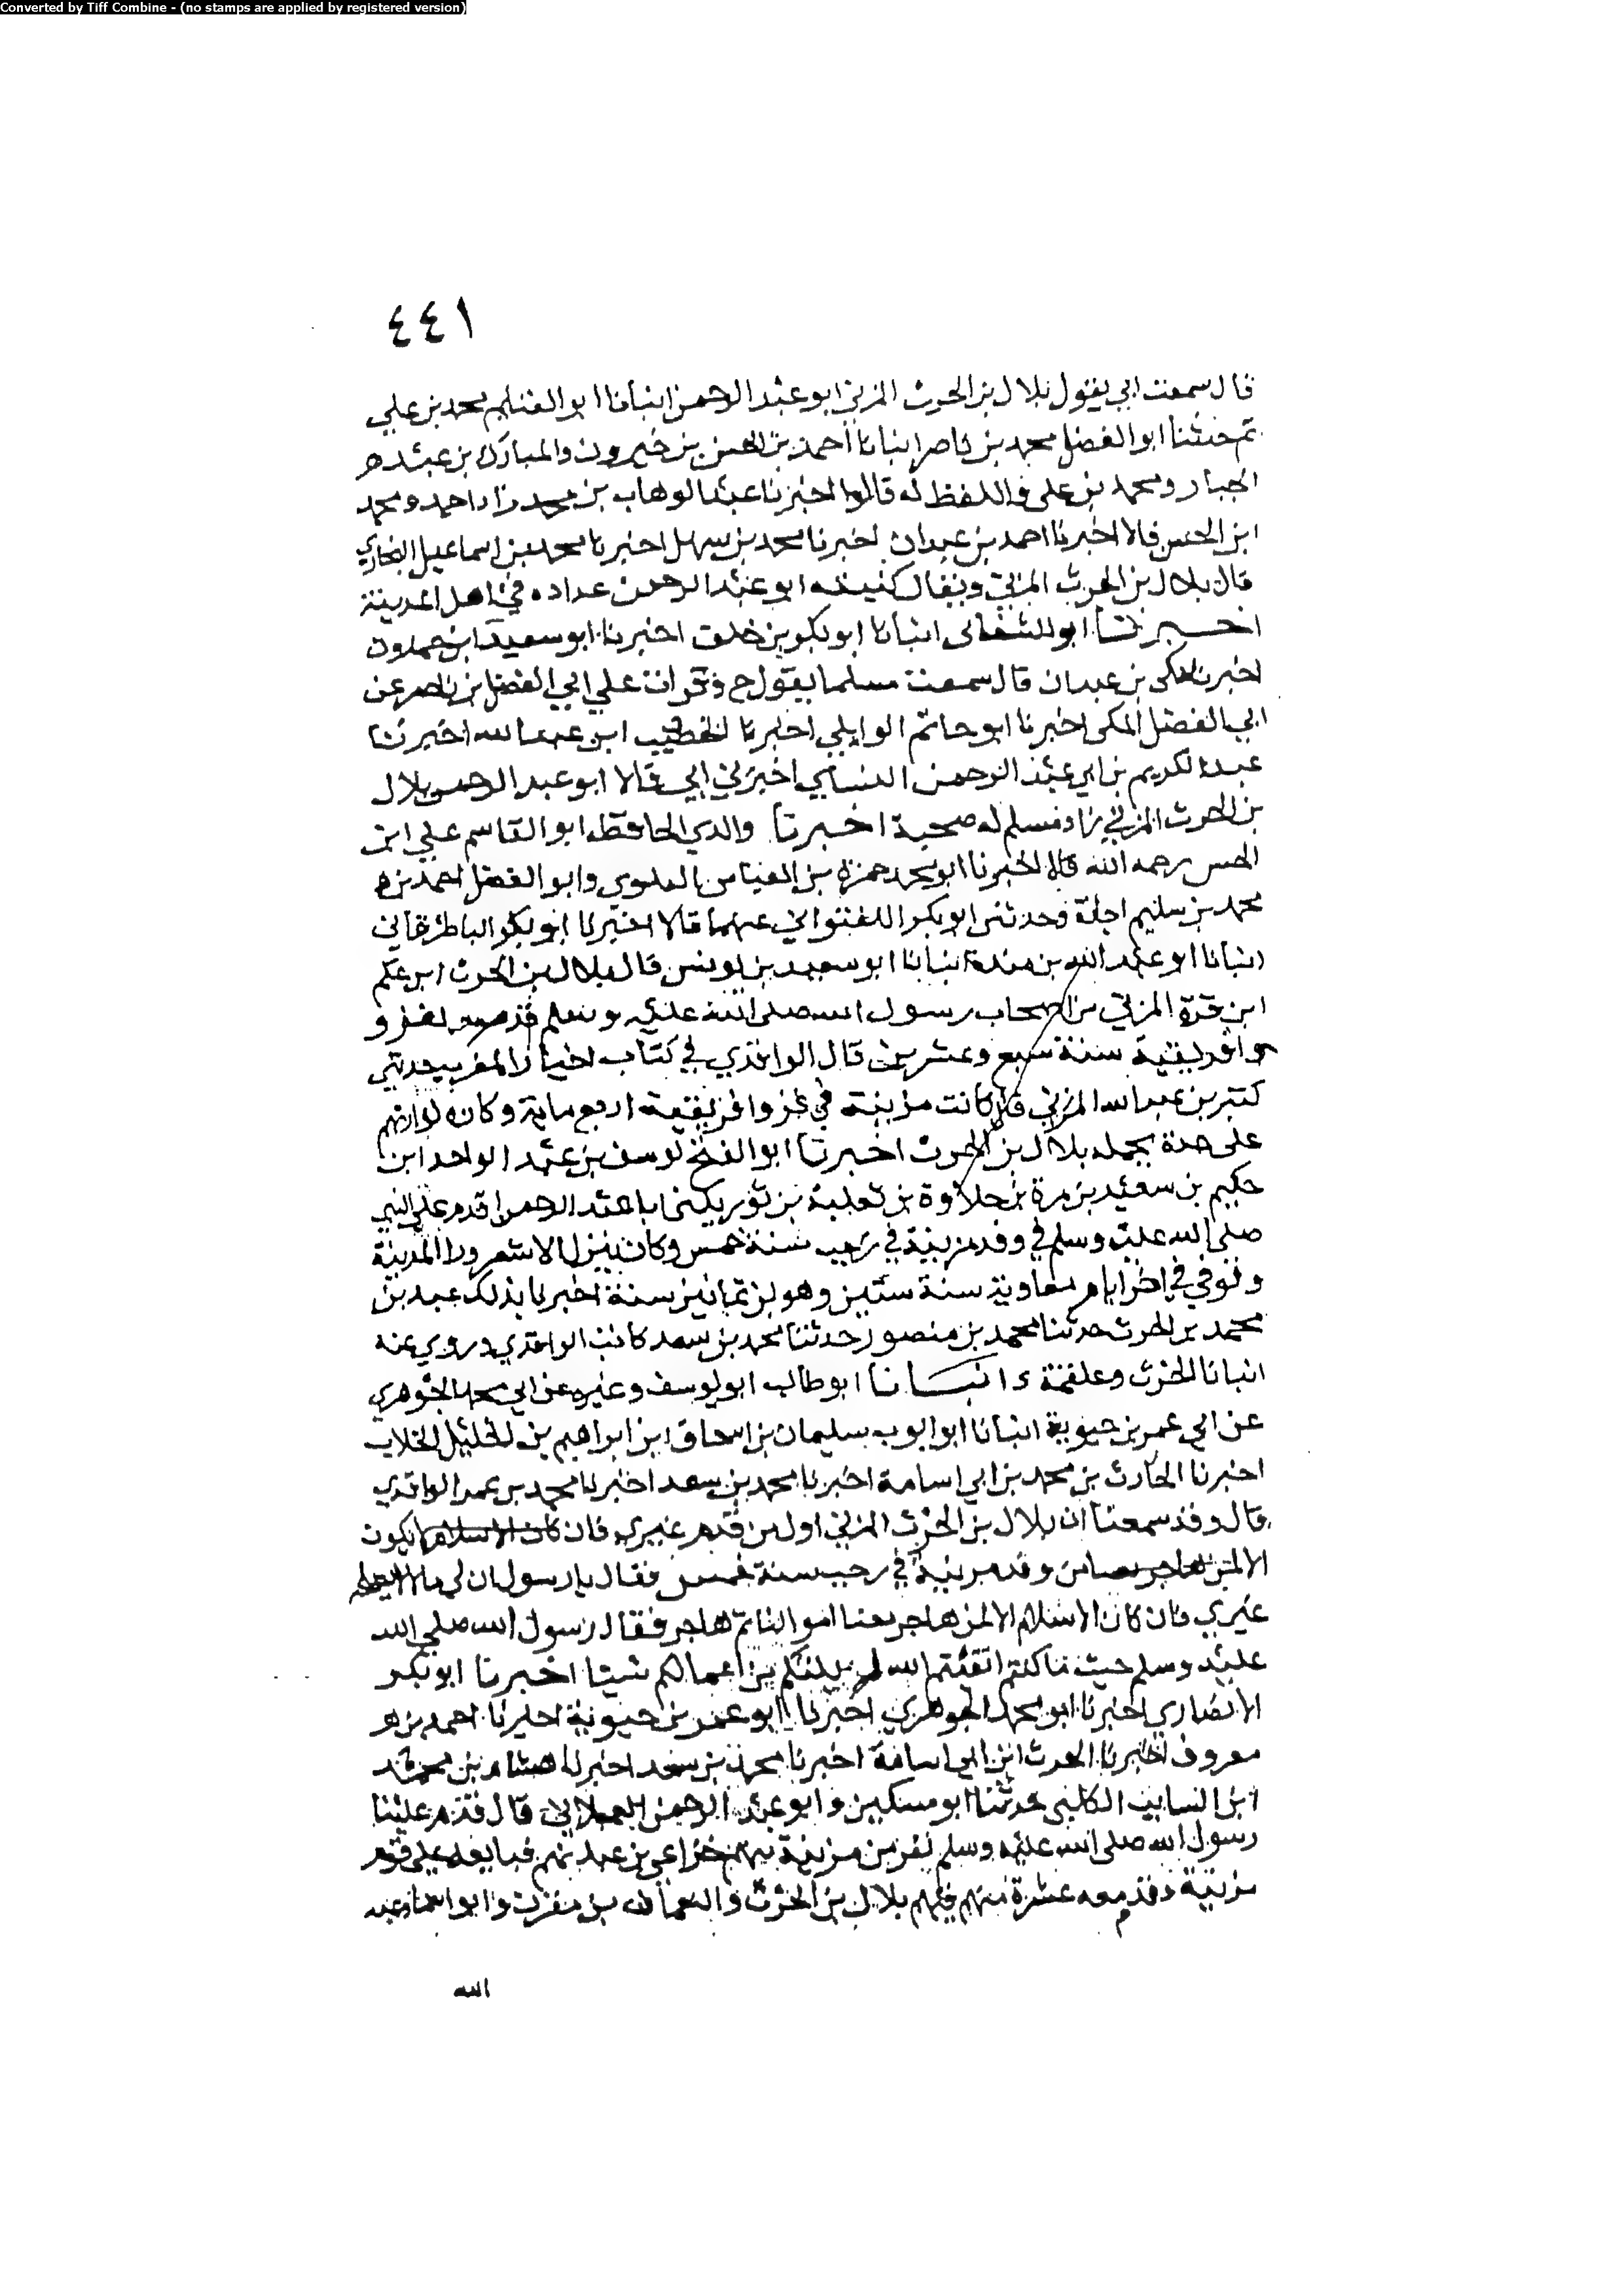 Converted by Tiff Combine - (no stamps are applied by registered version)
٤٤١
قال سمعت ابي يقول بلال بن الحرث المزني ابو عبد الرحمن انبانا ابو الغنايم محمد بن علي
ثم حدثنا ابو الفضل محمد بن ناصر انبانا احمد بن الحسن بن خيرون والمبارك بن عبد
الجبار ومحمد بن علي واللفظ له قالوا اخبرنا عبد الوهاب بن محمد زاد احمد ومحمد
ابن الحسن قالا اخبرنا احمد بن عبدان اخبرنا محمد بن سهل اخبرنا محمد بن اسماعيل البخاري
قال بلال بن الحرث المزني ويقال كنيته ابو عبد الرحمن عداده في اهل المدينة
اخبرنا ابو الشقاني انبانا ابو بكر بن خلف اخبرنا ابو سعيد ابن حمدون
اخبرنا مكي بن عبدان قال سمعت مسلما يقول ح وقرات علي ابي الفضل بن ناصر عن
ابي الفضل المكي اخبرنا ابو حاتم الوايلي اخبرنا الخصيب ابن عبد الله اخبرنا
عبد الكريم بن ابي عبد الرحمن النسايي اخبرني ابي قالا ابو عبد الرحمن بلال
بن الحرث المزني زاد مسلم له صحبة اخبرنا والدي الحافظ ابو القاسم علي ابن
الحسن رحمه الله قال اخبرنا ابو محمد حمزة بن العباس العلوي وابو الفضل احمد بن
محمد بن سليم اجلة وحدثني ابو بكر اللفتواني عنهما قالا اخبرنا ابو بكر الباطرقاني
انبانا ابو عبد الله بن مندة انبانا ابو سعيد بن يونس قال بلال بن الحرث ابن عكم
ابن قرة المزني من اصحاب رسول الله صلى الله عليه وسلم قدم لغزو
افريقية سنة سبع وعشرين قال الواقدي في كتاب اخبار المغرب حدثني
كثير بن عبد الله المزني قال كانت مزينة في غزو افريقية اربع ماية وكان لوازنهم
على حدة يحمله بلال بن الحرث اخبرنا ابو الفتح يوسف بن عبد الواحد ابن
حكيم بن سعيد بن مرة بن حلاوة بن ثعلبة بن ثور يكنى ابا عبد الرحمن قدم علي النبي
صلى الله عليه وسلم في وفد مزينة في رجب سنة خمس وكان ينزل الاشعر ورا المدينة
وتوفي في اخر ايام معاوية سنة ستين وهو بن ثمانين سنة اخبرنا بذلك عبد بن
محمد بن الحرث حدثنا محمد بن منصور حدثنا محمد بن سعد كاتب الواقدي وروي عنه
انبانا الحرث وعلقمة د انبانا ابو طالب ابو يوسف وغيره عن ابي محمد الجوهري
عن ابي عمر بن حيوية انبانا ابو ايوب سليمان بن اسحاق ابن ابراهيم بن الخليل الخلاب
اخبرنا الحارث بن محمد بن ابي اسامة اخبرنا محمد بن سعد اخبرنا محمد بن عمر الواقدي
قال وقد سمعنا ان بلال بن الحرث المزني اول من قدم غيري فان كان الاسلام يكون
الا لمن هاجر من وفد مزينة في رجب سنة خمس فقال يا رسول ان لي مالا
غيري فان كان الاسلام الا لمن هاجر بعنا اموالنا ثم هاجر فقال رسول الله صلى الله
عليه وسلم حيث ما كنتم اتقيتم الله لم يلتكم من اعمالكم شيئا اخبرنا ابو بكر
الانصاري اخبرنا ابو محمد الجوهري اخبرنا ابو عمر بن حيوية اخبرنا احمد بن
معروف اخبرنا الحرث ابن ابي اسامة اخبرنا محمد بن سعد اخبرنا هشام بن محمد
ابن السايب الكلبي حدثنا ابو مسكين وابو عبد الرحمن العجلاني قال قدم علينا
رسول الله صلى الله عليه وسلم نفر من مزينة منهم خزاعي بن عبد نهم فبايعه علي قومه
مزينة وقدم معه عشرة منهم فيهم بلال بن الحرث والنعمان بن مقرن وابو اسماء وعبد
الله